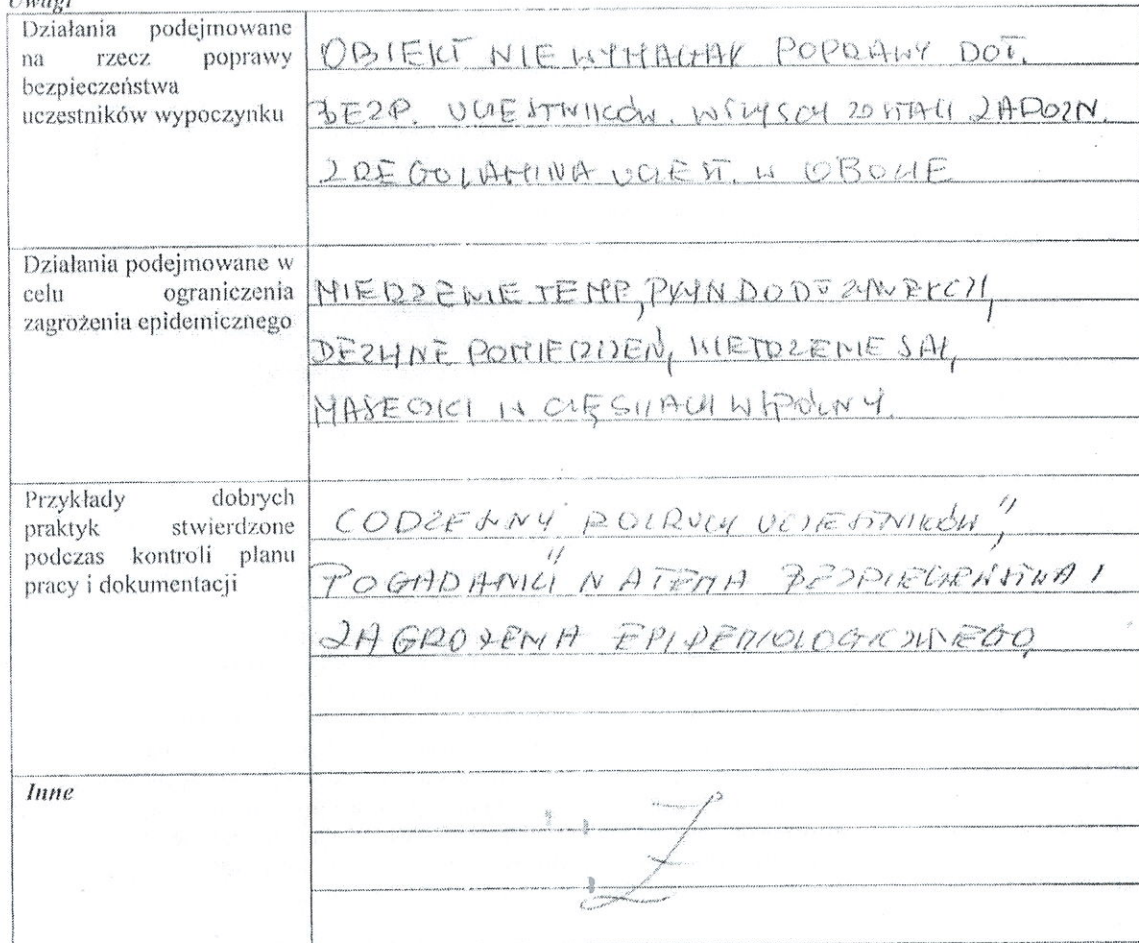 Uwagi
Działania podejmowane
na rzecz poprawy
bezpieczeństwa
uczestników wypoczynku
OBIEKT NIE WYMAGAŁ POPRAWY DOT.
BEZP. UCZESTNIKÓW. WSZYSCY ZOSTALI ZAPOZN.
Z REGULAMINA UCZEST. W OBOZIE
Działania podejmowane w
celu ograniczenia
zagrożenia epidemicznego
MIERZENIE TEMP, PŁYN DO DEZYNFEKCJI,
POMIESZCZEŃ, WIETRZENIE SAL,
MASECZKI W CZĘŚCIACH WSPÓLNY.
Przykłady dobrych
praktyk stwierdzone
podczas kontroli planu
pracy i dokumentacji
CODZIENNY UCZESTNIKÓW",
POGADANKI NA TEMA BEZPIECZEŃSTWA I
ZAGROŻENIA EPIDEMIOLOGICZNEGO
Inne